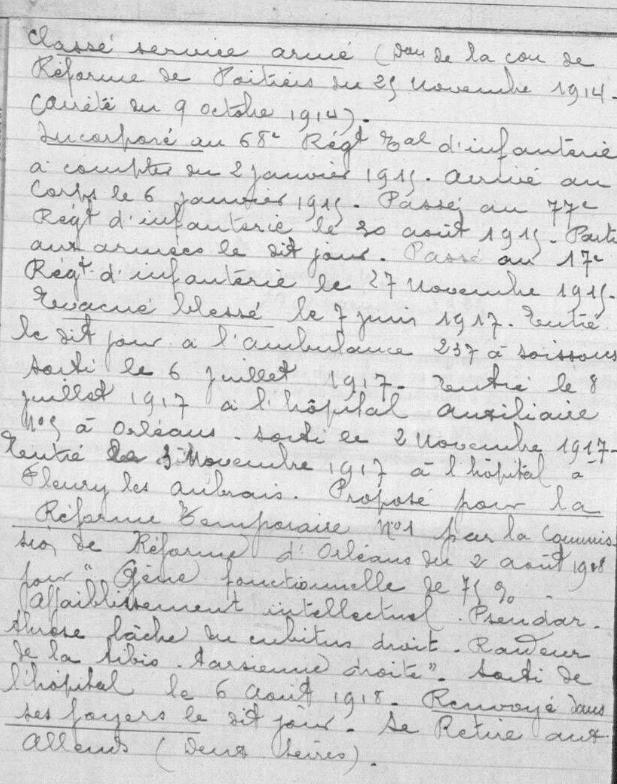 Classé service armé (Don de la con de
Réforme de Poitiers du 25 Novembre 1914.
(arrêté du 9 octobre 1914).
Incorporé au 68e Régt Tal d'infanterie
à compter du 2 janvier 1915. Arrivé au
Corps le 6 janvier 1915. Passé au 77e
Régt d'infanterie le 20 août 1915. Parti
aux armées le dit jour. Passé au 17e
Régt d'infanterie le 27 Novembre 1915.
Evacué blessé le 7 juin 1917. Entré
le dit jour a l'ambulance 237 à Soissons
sorti le 6 juillet 1917. Entré le 8
juillet 1917 a l'hôpital auxiliaire
No5 à Orléans. sorti le 2 Novembre 1917.
Entré le 3 Novembre 1917 à l'hôpital à
Fleury les aubrais. Proposé pour la
Réforme Temporaire No1 par la Commis
sion de Réforme d'Orléans du 2 août 1918
pour "Gêne fonctionnelle de 75 %.
Affaiblissement intellectuel. Pseudar.
throse lâche du cubitus droit. Raideur
de la tibio-tarsienne droite". Sorti de
l'hôpital le 6 Août 1918. Renvoyé dans
ses foyers le dit jour. Se Retire aux
(Deux Sèvres).